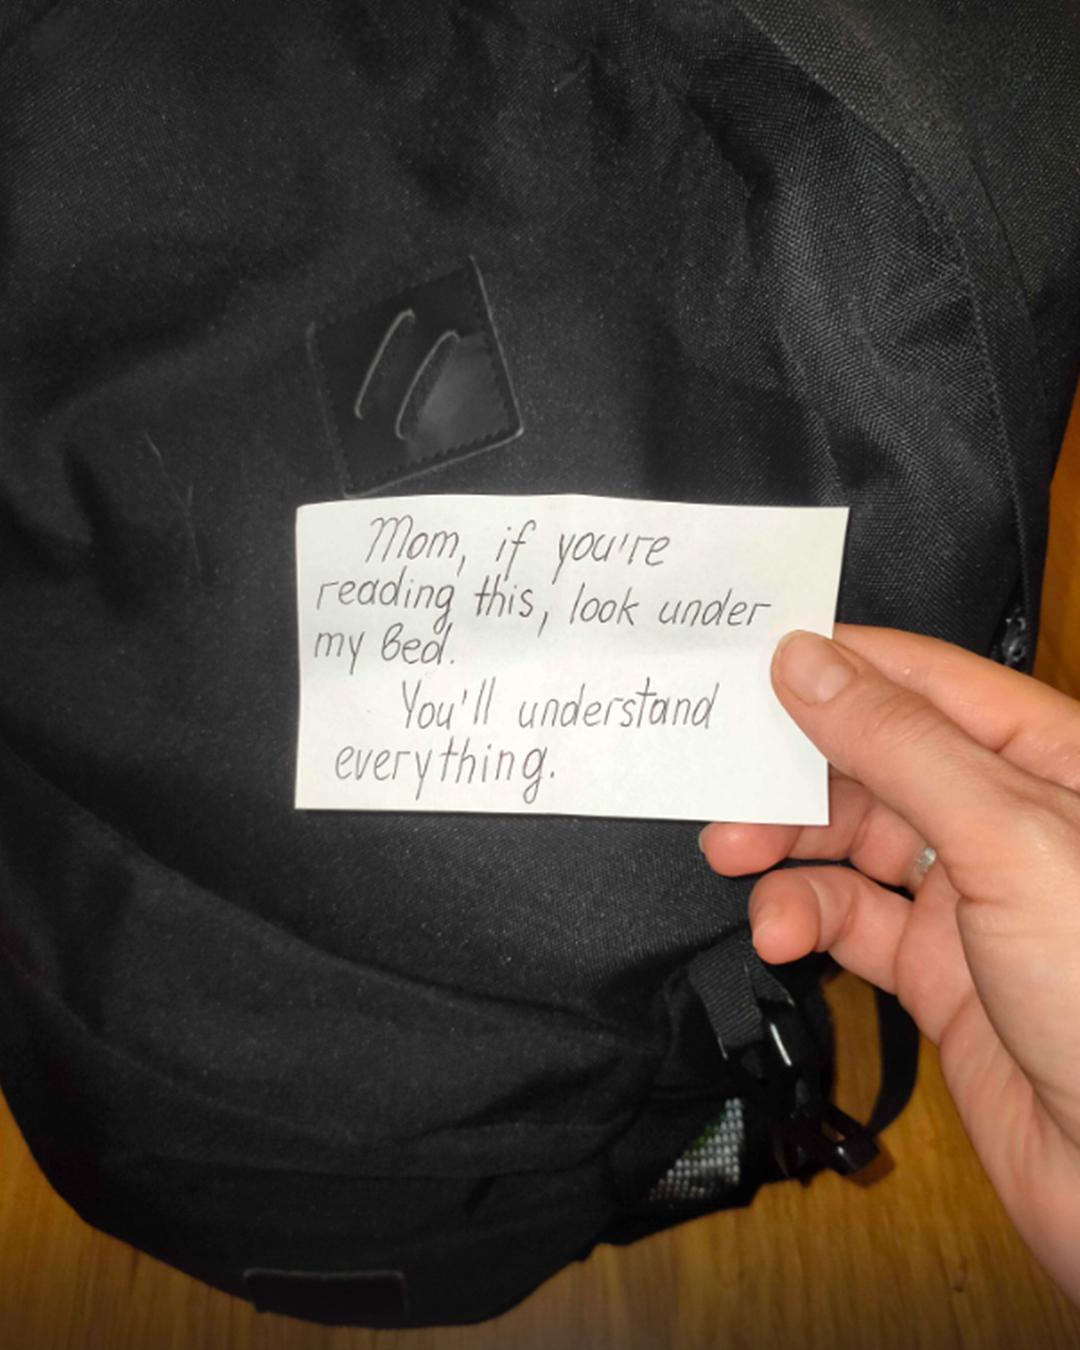 Mom, if you're
reading this, look under
my Bed.
You'll understand
everything.